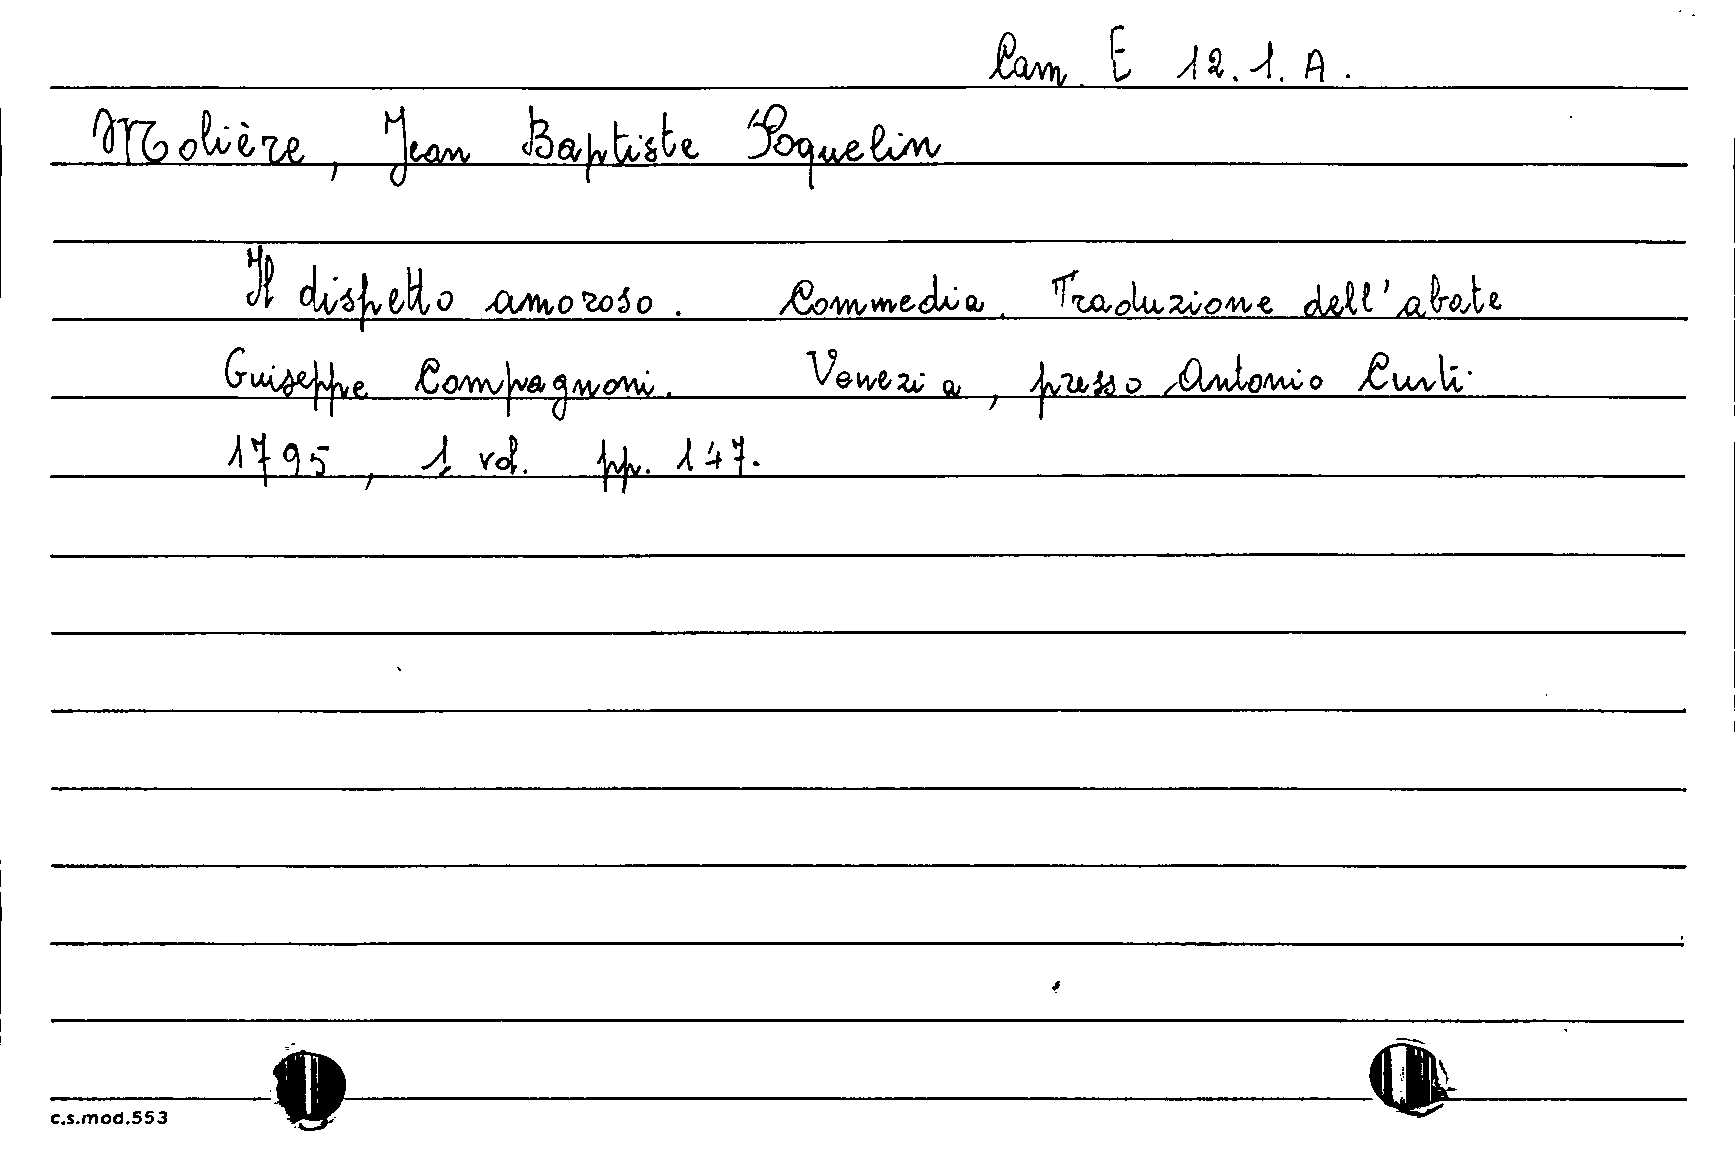 Cam. E 12.1.A.
Molière, Jean Baptiste Poquelin
Il dispetto amoroso. Commedia. Traduzione dell'abate
Guiseppe Compagnoni. Venezia, presso Antonio Curti
1795, 1 vol. pp. 147.
c.s.mod.553